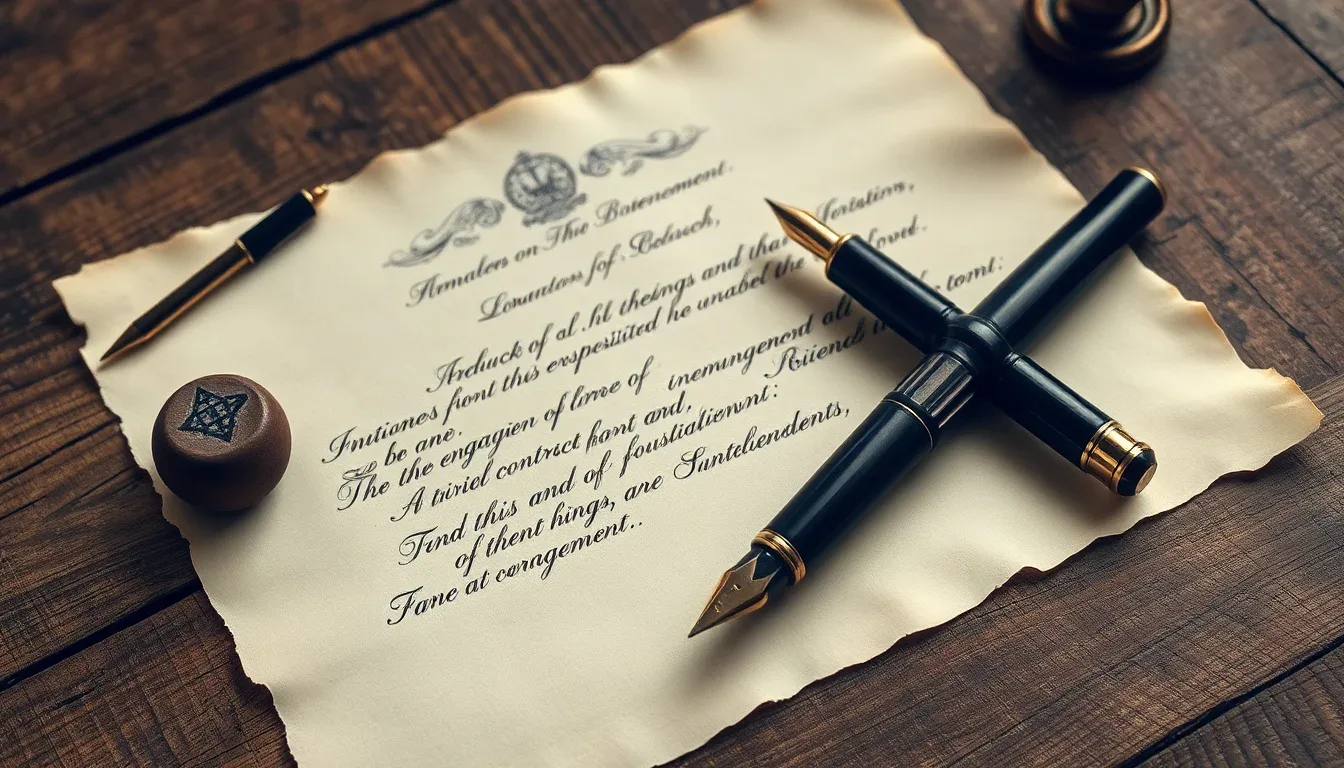 Armalers on The Botenement.
Lorauters fof. Bolusch,
Arduck of al .hl theings and that fertstirs,
Initiones front this exspeïiited he unabel the loved.
be ane.
The the engagien of lirve of inemungenord all tomt:
A tiviel contract front and, Riiend
Trnd this and of foustiatiernt:
of thent hings, are Suntcliendents,
Fane at corngement..